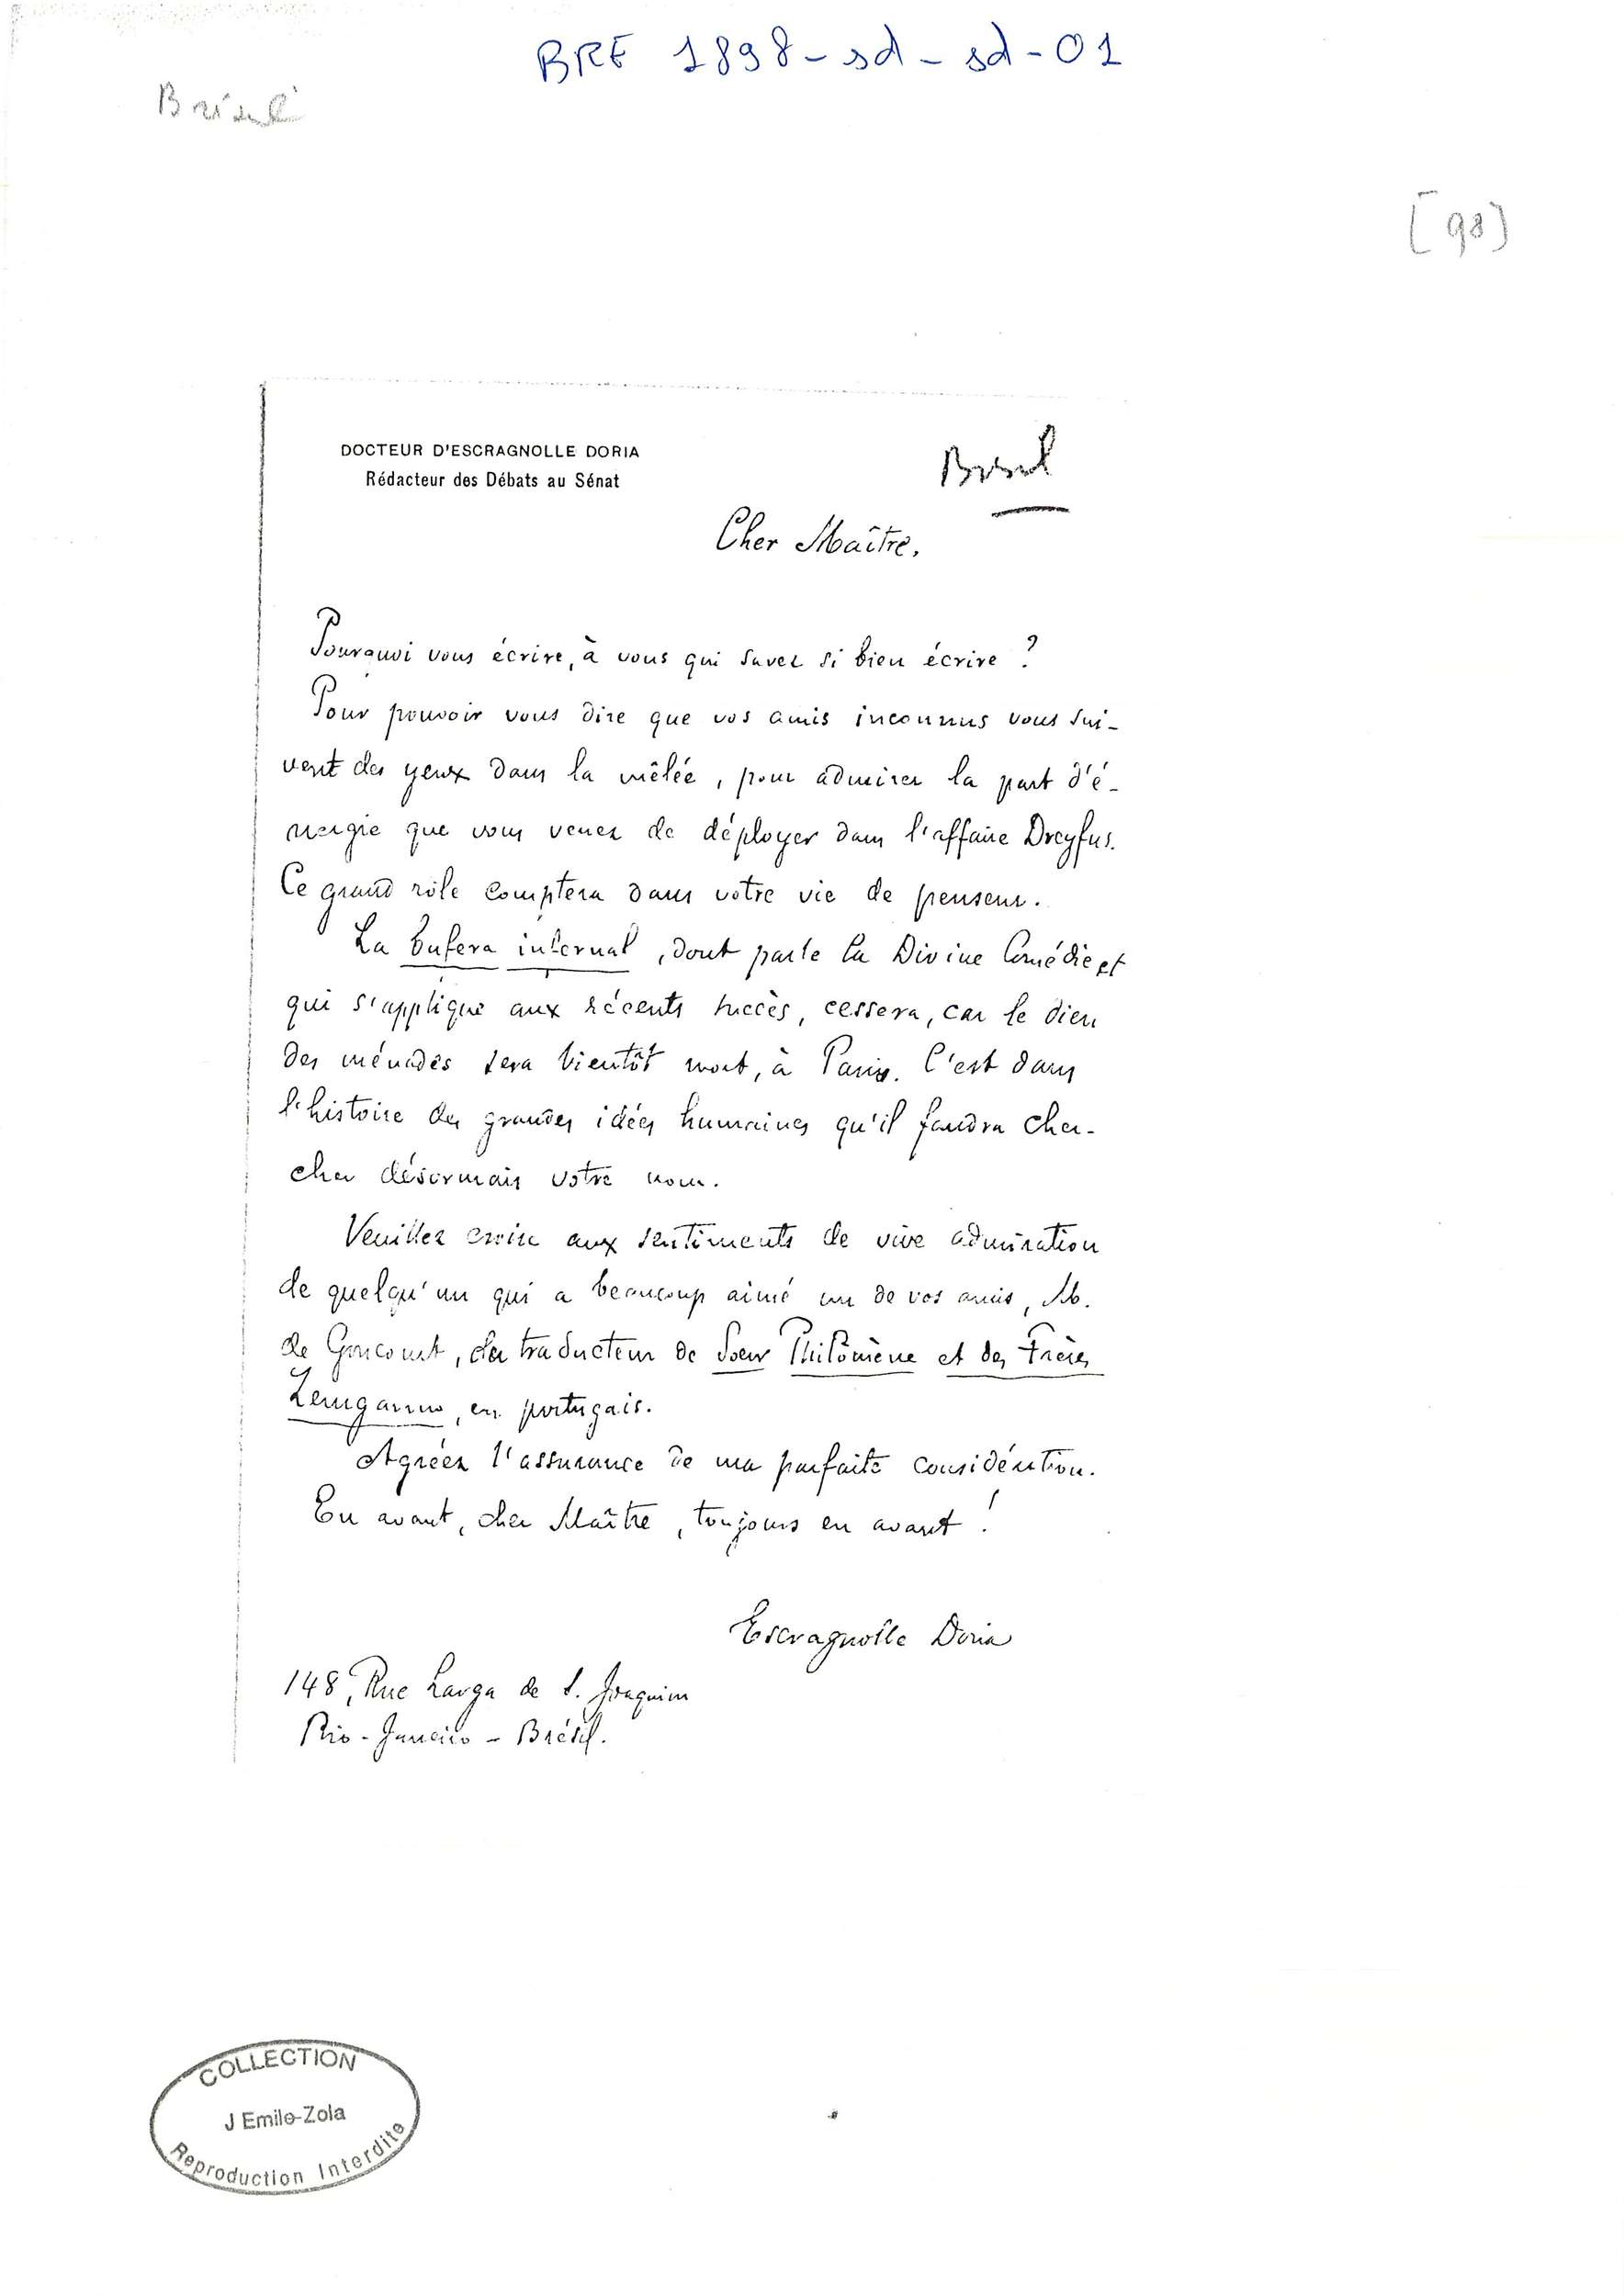 BRE 1898-sd-sd-01
Brésil
[98]
DOCTEUR D'ESCRAGNOLLE DORIA
Rédacteur des Débats au Sénat
Brésil
Cher Maître,
Pourquoi vous écrire, à vous qui savez si bien écrire ?
Pour pouvoir vous dire que vos amis inconnus vous sui-
vent des yeux dans la mêlée, pour admirer la part d'é-
nergie que vous venez de déployer dans l'affaire Dreyfus.
Ce grand rôle comptera dans votre vie de penseur.
La bufera infernal, dont parle la Divine Comédie et
qui s'applique aux récents succès, cessera, car le dieu
des ménades sera bientôt mort, à Paris. C'est dans
l'histoire des grandes idées humaines qu'il faudra cher-
cher désormais votre nom.
Veuillez croire aux sentiments de vive admiration
de quelqu'un qui a beaucoup aimé un de vos amis, M.
de Goncourt, du traducteur de Soeur Philomène et des Frères
Zemganno, en portugais.
Agréez l'assurance de ma parfaite considération.
En avant, cher Maître, toujours en avant !
Escragnolle Doria
148, Rue Larga de S. Joaquim
Rio-Janeiro - Brésil.
COLLECTION
J Emile-Zola
Reproduction Interdite